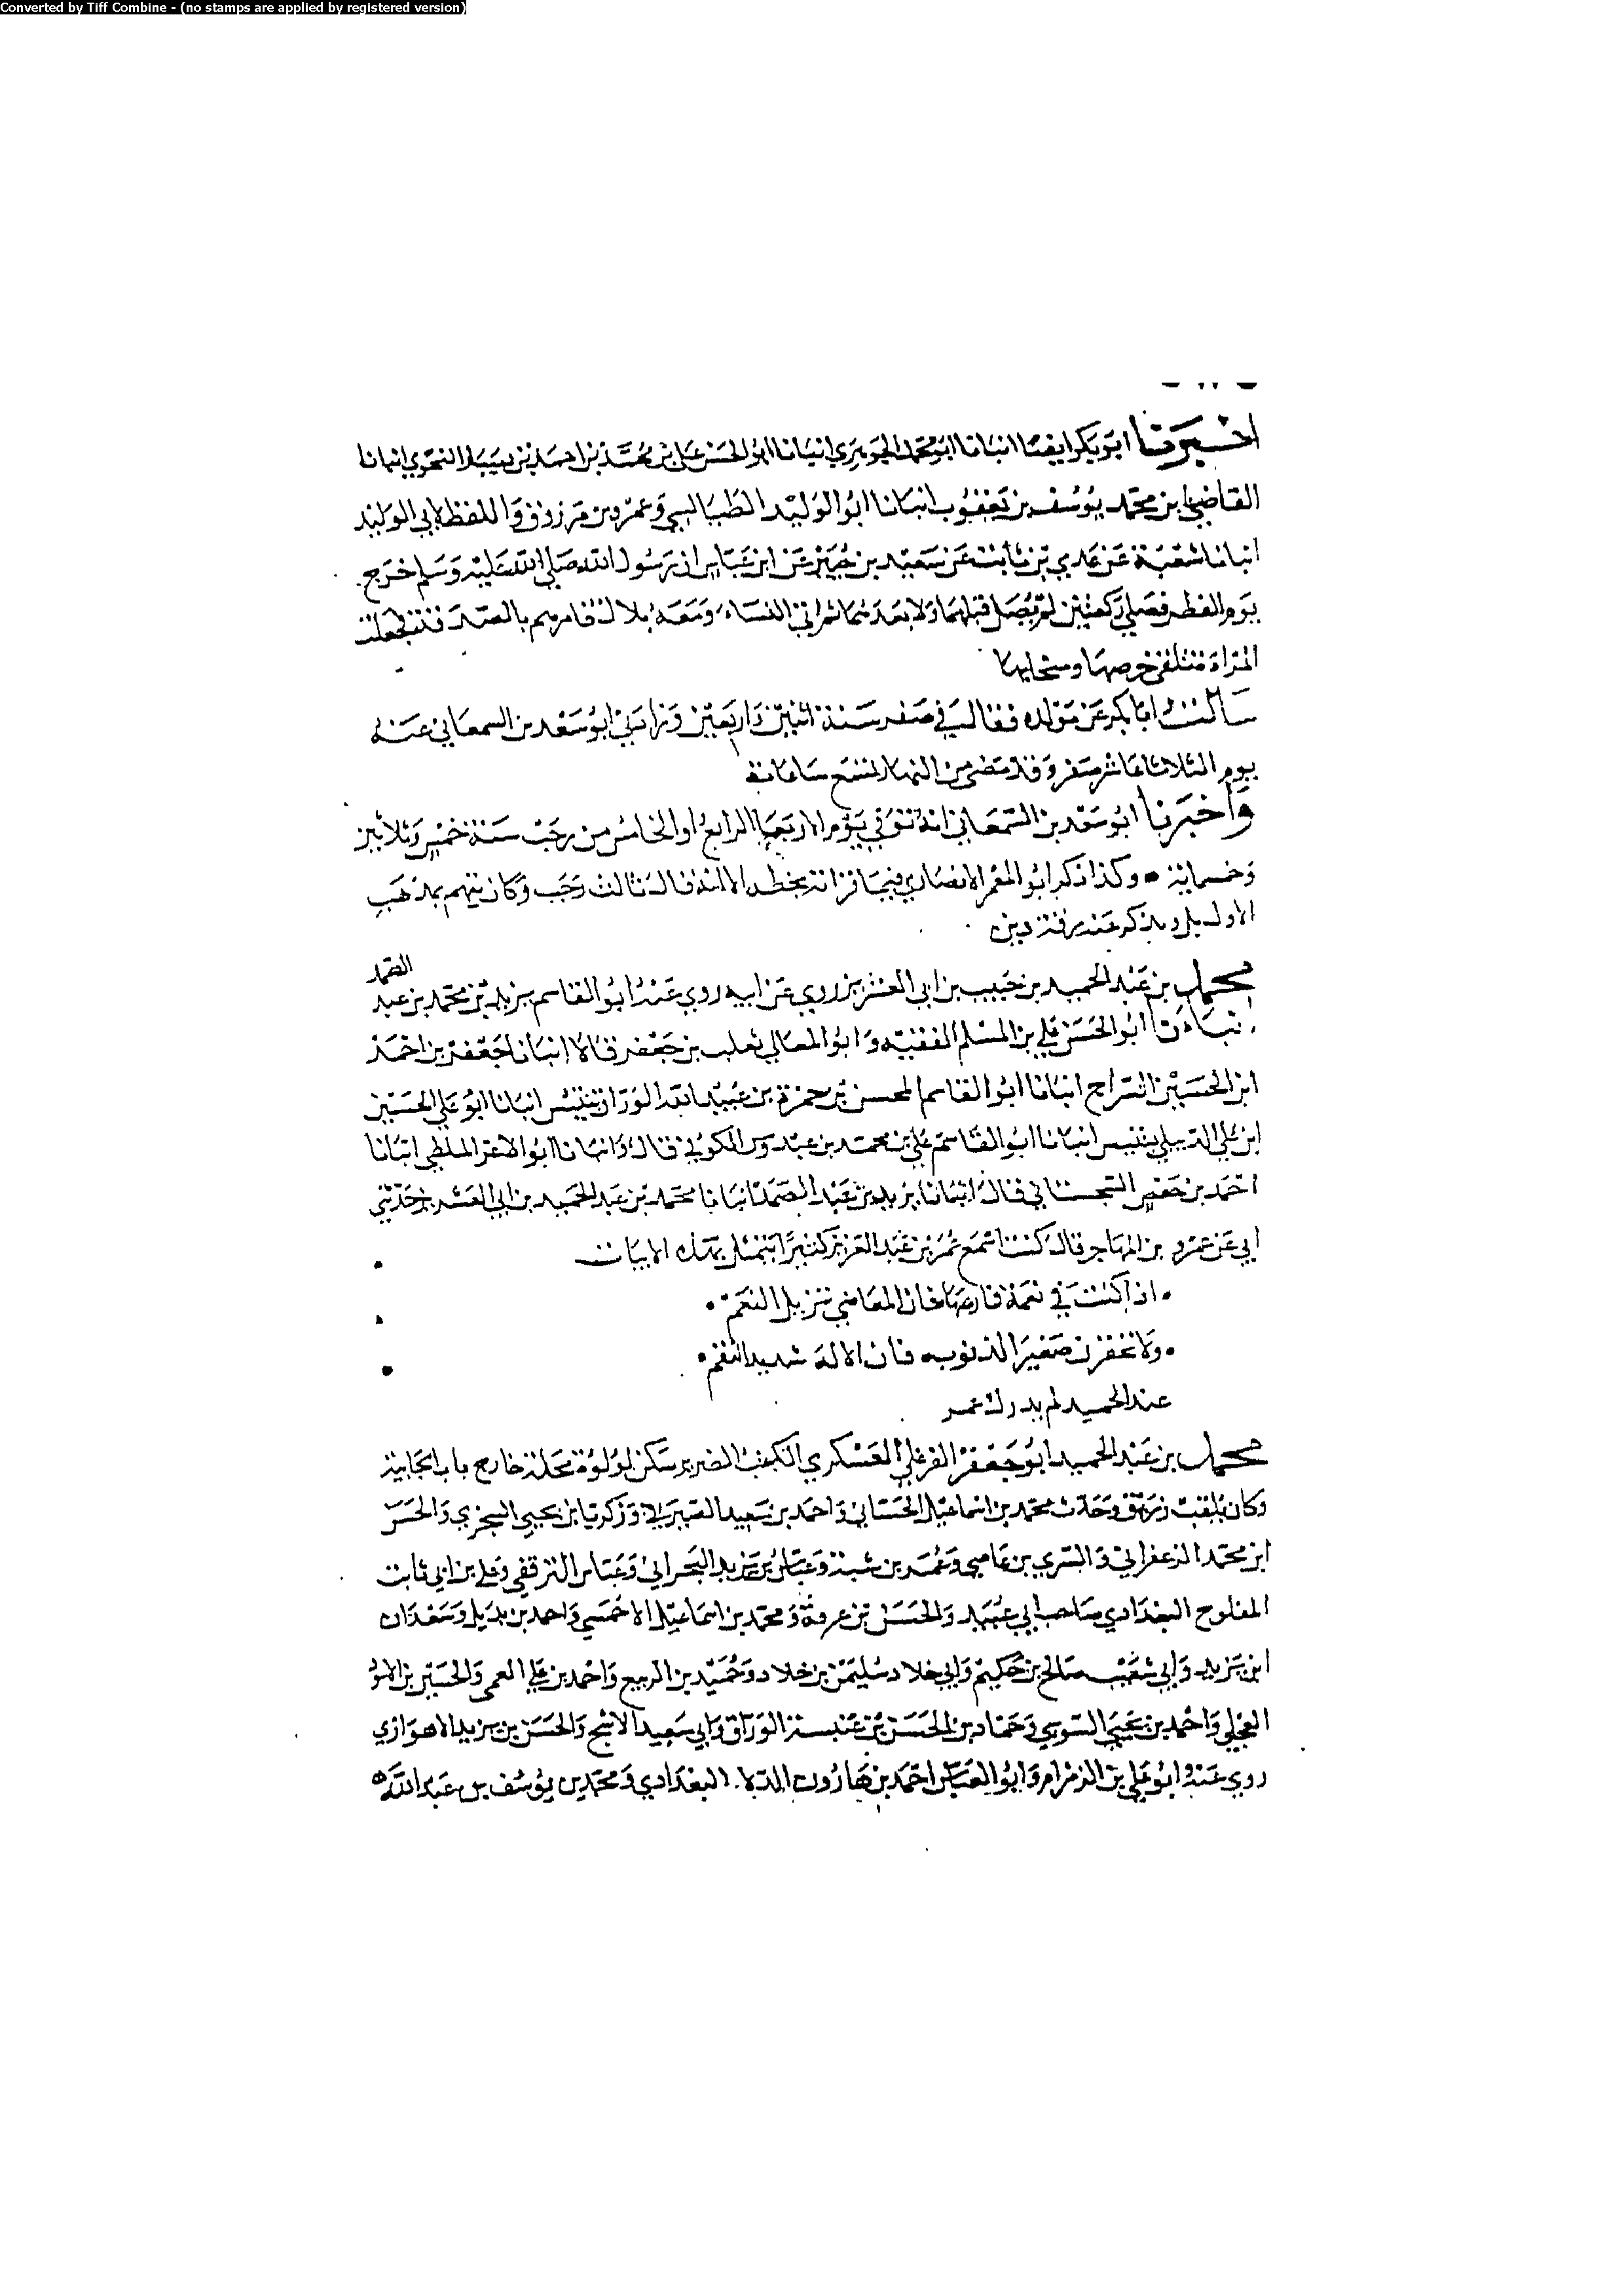 Converted by Tiff Combine - (no stamps are applied by registered version)
اخبرنا ابو بكر ايضا انبانا ابو محمد الجوهري انبانا ابو الحسن علي بن محمد بن احمد بن كيسان النحوي انبانا
القاضي بن محمد يوسف بن يعقوب انبانا ابو الوليد الطيالسي وعمرو بن مرزوق واللفظ لابي الوليد
انبانا شعبة عن عدي بن ثابت عن سعيد بن جبير عن ابن عباس ان رسول الله صلى الله عليه وسلم خرج
يوم الفطر فصلى ركعتين لم يصل قبلهما ولا بعدهما ثم اتى النساء ومعه بلال فامرهم بالصدقة فجعلت
المراة تلقي خرصها وسخابها
سالت ابا بكر عن مولده فقال في صفر سنة اثنين واربعين وزادني ابو سعد بن السمعاني عنه
يوم الثلاثا عاشر صفر وقد مضى من النهار تسع ساعات
واخبرنا ابو سعد بن السمعاني انه توفي يوم الاربعا الرابع او الخامس من رجب سنة خمس وثلاثين
وخمسماية وكذا ذكر ابو المعمر الانصاري فيما قراته بخطه الا انه قال ثالث رجب وكان يتهم بمذهب
الاوايل ويذكر عنه رقة دين
محمد بن عبد الحميد بن حبيب بن ابي العشرين روي عن ابيه روي عنه ابو القاسم يزيد بن محمد بن عبد
الصمد
انبانا ابو الحسن علي بن المسلم الفقيه وابو المعالي ثعلب بن جعفر قالا انبانا جعفر بن احمد
ابن الحسين السراج انبانا ابو القاسم المحسن بن حمزة بن عبيد الله الوراق بتنيس انبانا ابو علي الحسين
ابن علي الديبلي بتنيس انبانا ابو القاسم علي بن محمد بن عبدوس الكوفي قال وانبانا ابو الاعز الملطي انبانا
احمد بن حفص السجستاني قال انبانا يزيد بن عبد الصمد انبانا محمد بن عبد الحميد بن ابي العشرين حدثني
ابي عن عمرو بن المهاجر قال كنت اسمع عمر بن عبد العزيز كثيرا يتمثل بهذه الابيات
اذا كنت في نعمة فارعها فان المعاصي تزيل النعم
ولا تحقرن صغير الذنوب فان الاله شديد النقم
عبد الحميد لم يدرك عمر
محمد بن عبد الحميد ابو جعفر الفرغاني العسكري المكفوف الضرير سكن لولوة محلة خارج باب الجابية
وكان يلقب زريق وحدث محمد بن اسماعيل الحساني واحمد بن سعيد وزكريا بن يحيى السجزي والحسن
ابن محمد الزعفراني والسري بن عاصم وعمر بن شبة وعباس بن يزيد البحراني وعباس الترقفي وعلي بن ابي ثابت
المفلوج البغدادي صاحب ابي عبيد والحسن بن عرفة ومحمد بن اسماعيل الاحمسي واحمد بن بديل وسعدان
ابن يزيد وابي شعيب صالح بن حكيم وابي خلاد سليمن بن خلاد وحميد بن الربيع واحمد بن علي العمي والحسين بن الاسود
العجلي واحمد بن يحيى السوسي وحماد بن الحسن بن عنبسة الوراق وابي سعيد الاشج والحسن بن يزيد الاهوازي
روي عنه ابو علي بن الزمزام وابو العباس احمد بن هارون البغدادي ومحمد بن يوسف بن عبد الله